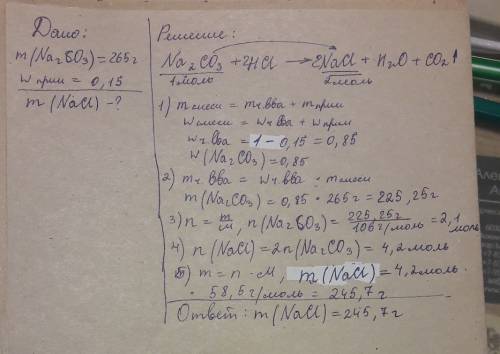 Дано:
m(Na₂CO₃)=265г
w прим = 0,15
m(NaCl)-?
Решение:
Na₂CO₃ +2HCl → 2NaCl + H₂O + CO₂↑
1моль 2моль
1) m смеси = m ч.вва + m прим
w смеси = w ч.вва + w прим
w ч.вва = 1 - 0,15 = 0,85
w(Na₂CO₃)=0,85
2) m ч.вва = w ч.вва · m смеси
m(Na₂CO₃) = 0,85 · 265г = 225,25г
3) n = m/M, n(Na₂CO₃) = 225,25г/106г/моль = 2,1 моль
4) n(NaCl) = 2n(Na₂CO₃) = 4,2моль
5) m = n · M, m(NaCl) = 4,2моль ·
· 58,5г/моль = 245,7г
Ответ: m(NaCl)=245,7г